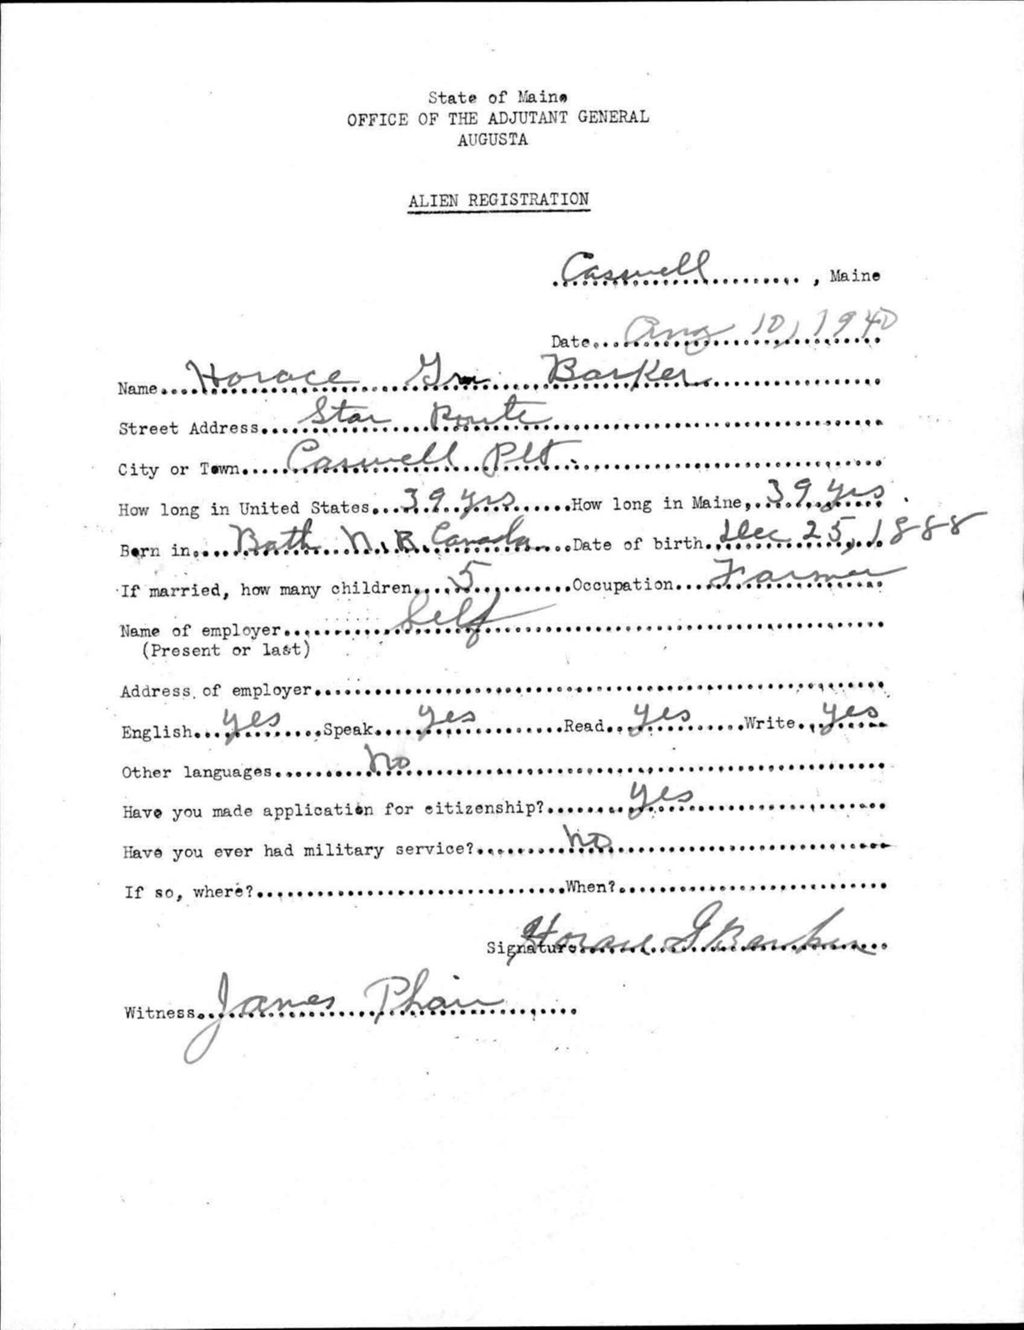 State of Maine
OFFICE OF THE ADJUTANT GENERAL
AUGUSTA
ALIEN REGISTRATION
Caswell, Maine
Date Aug 10, 1940
Name Horace Barker
Street Address Star Route
City or Town Caswell Plt.
How long in United States 39 yrs How long in Maine, 39 yrs
Born in Bath N.B. Canada Date of birth Dec 25, 1888
If married, how many children 5 Occupation Farmer
Name of employer Self
(Present or last)
Address of employer
English yes Speak yes Read yes Write yes
Other languages no
Have you made application for citizenship? yes
Have you ever had military service? no
If so, where? When?
Signature Horace G Barker
Witness James Phair